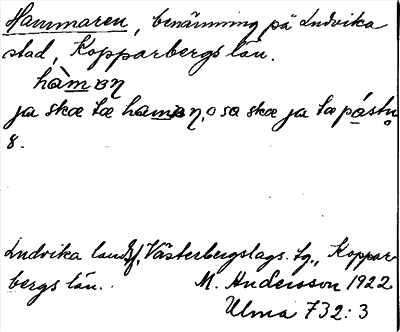 Hammaren, benämning på Ludvika
stad, Kopparbergs län.
hàmən
ja skæ tæ hamən, o sə skæ ja tæ pástu
8.
Ludvika landsf., Västerbergslags tg., Koppar-
bergs län. M. Andersson 1922
Ulma 732:3